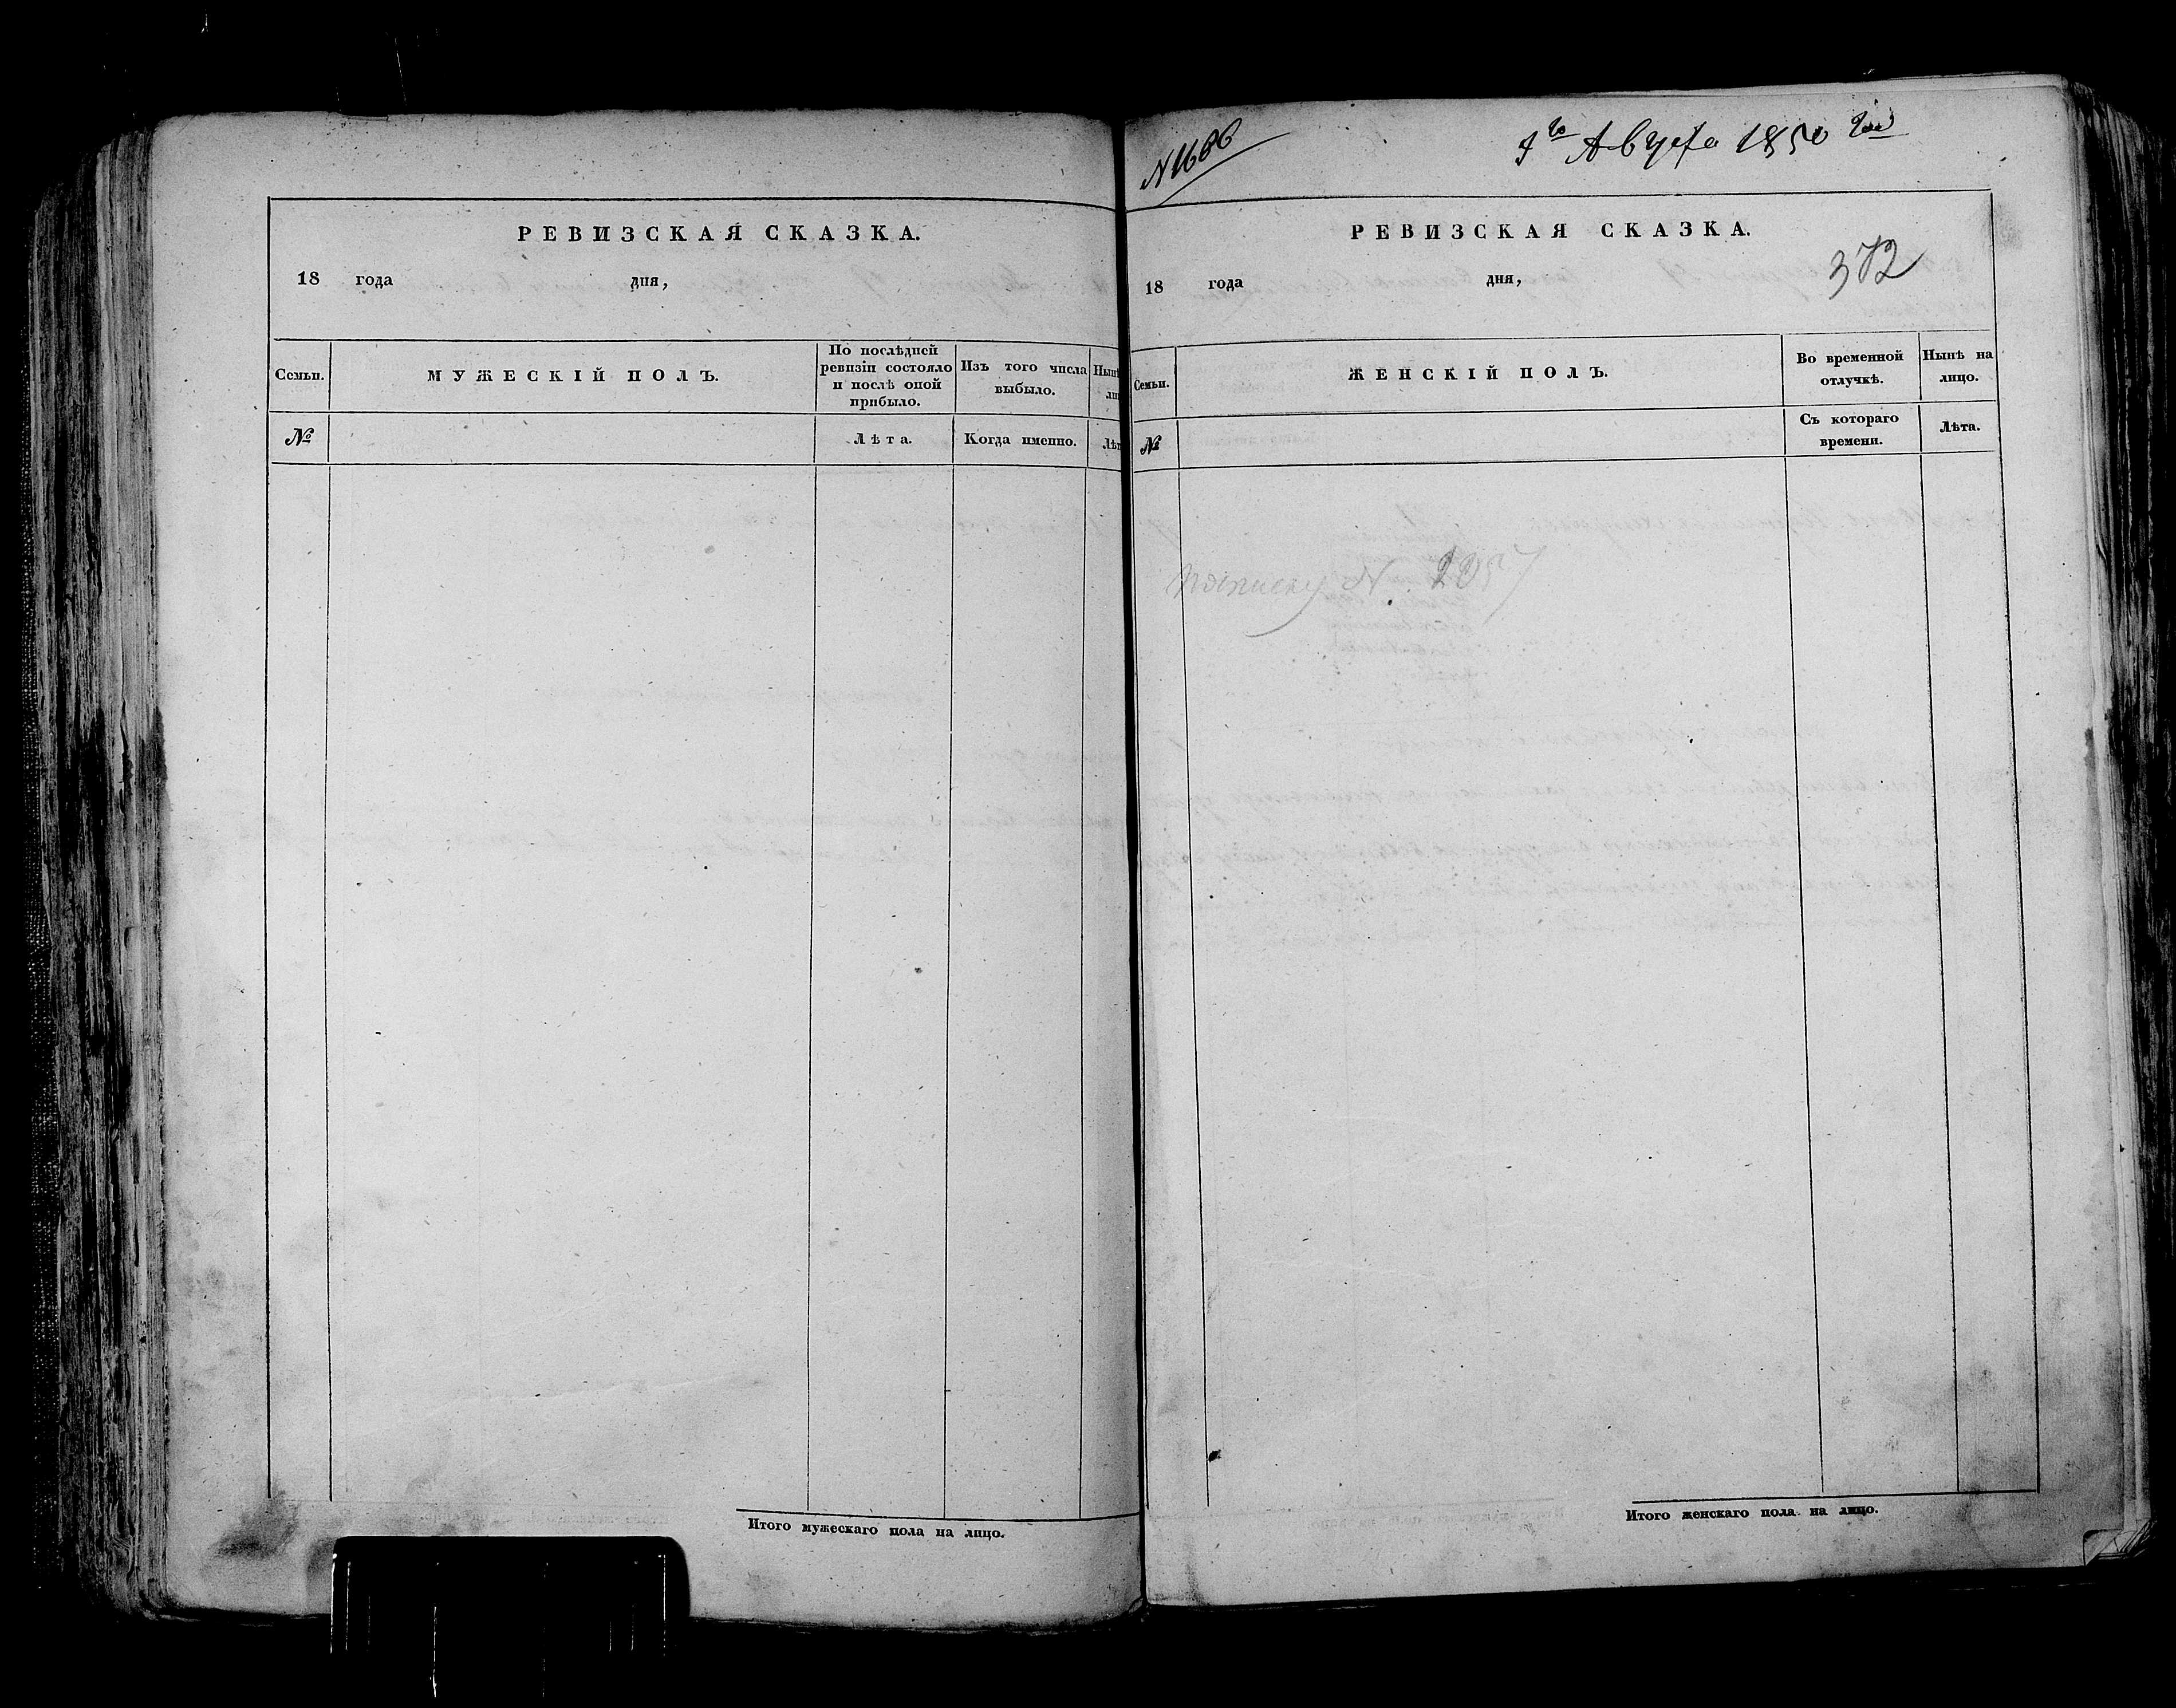 РЕВИЗСКАЯ СКАЗКА.
18 года дня,
Семьи.
МУЖЕСКІЙ ПОЛЪ.
По послѣдней
ревизіи состояло
и послѣ оной
прибыло.
Изъ того числа
выбыло.
№
Лѣта.
Когда именно.
Итого мужескаго пола на лицо.
9го Августа 1850 года
РЕВИЗСКАЯ СКАЗКА.
372
18 года дня,
Семьи.
ЖЕНСКІЙ ПОЛЪ.
Во временной
отлучкѣ.
Нынѣ на
лицо.
№
Съ котораго
времени.
Лѣта.
Итого женскаго пола на лицо.